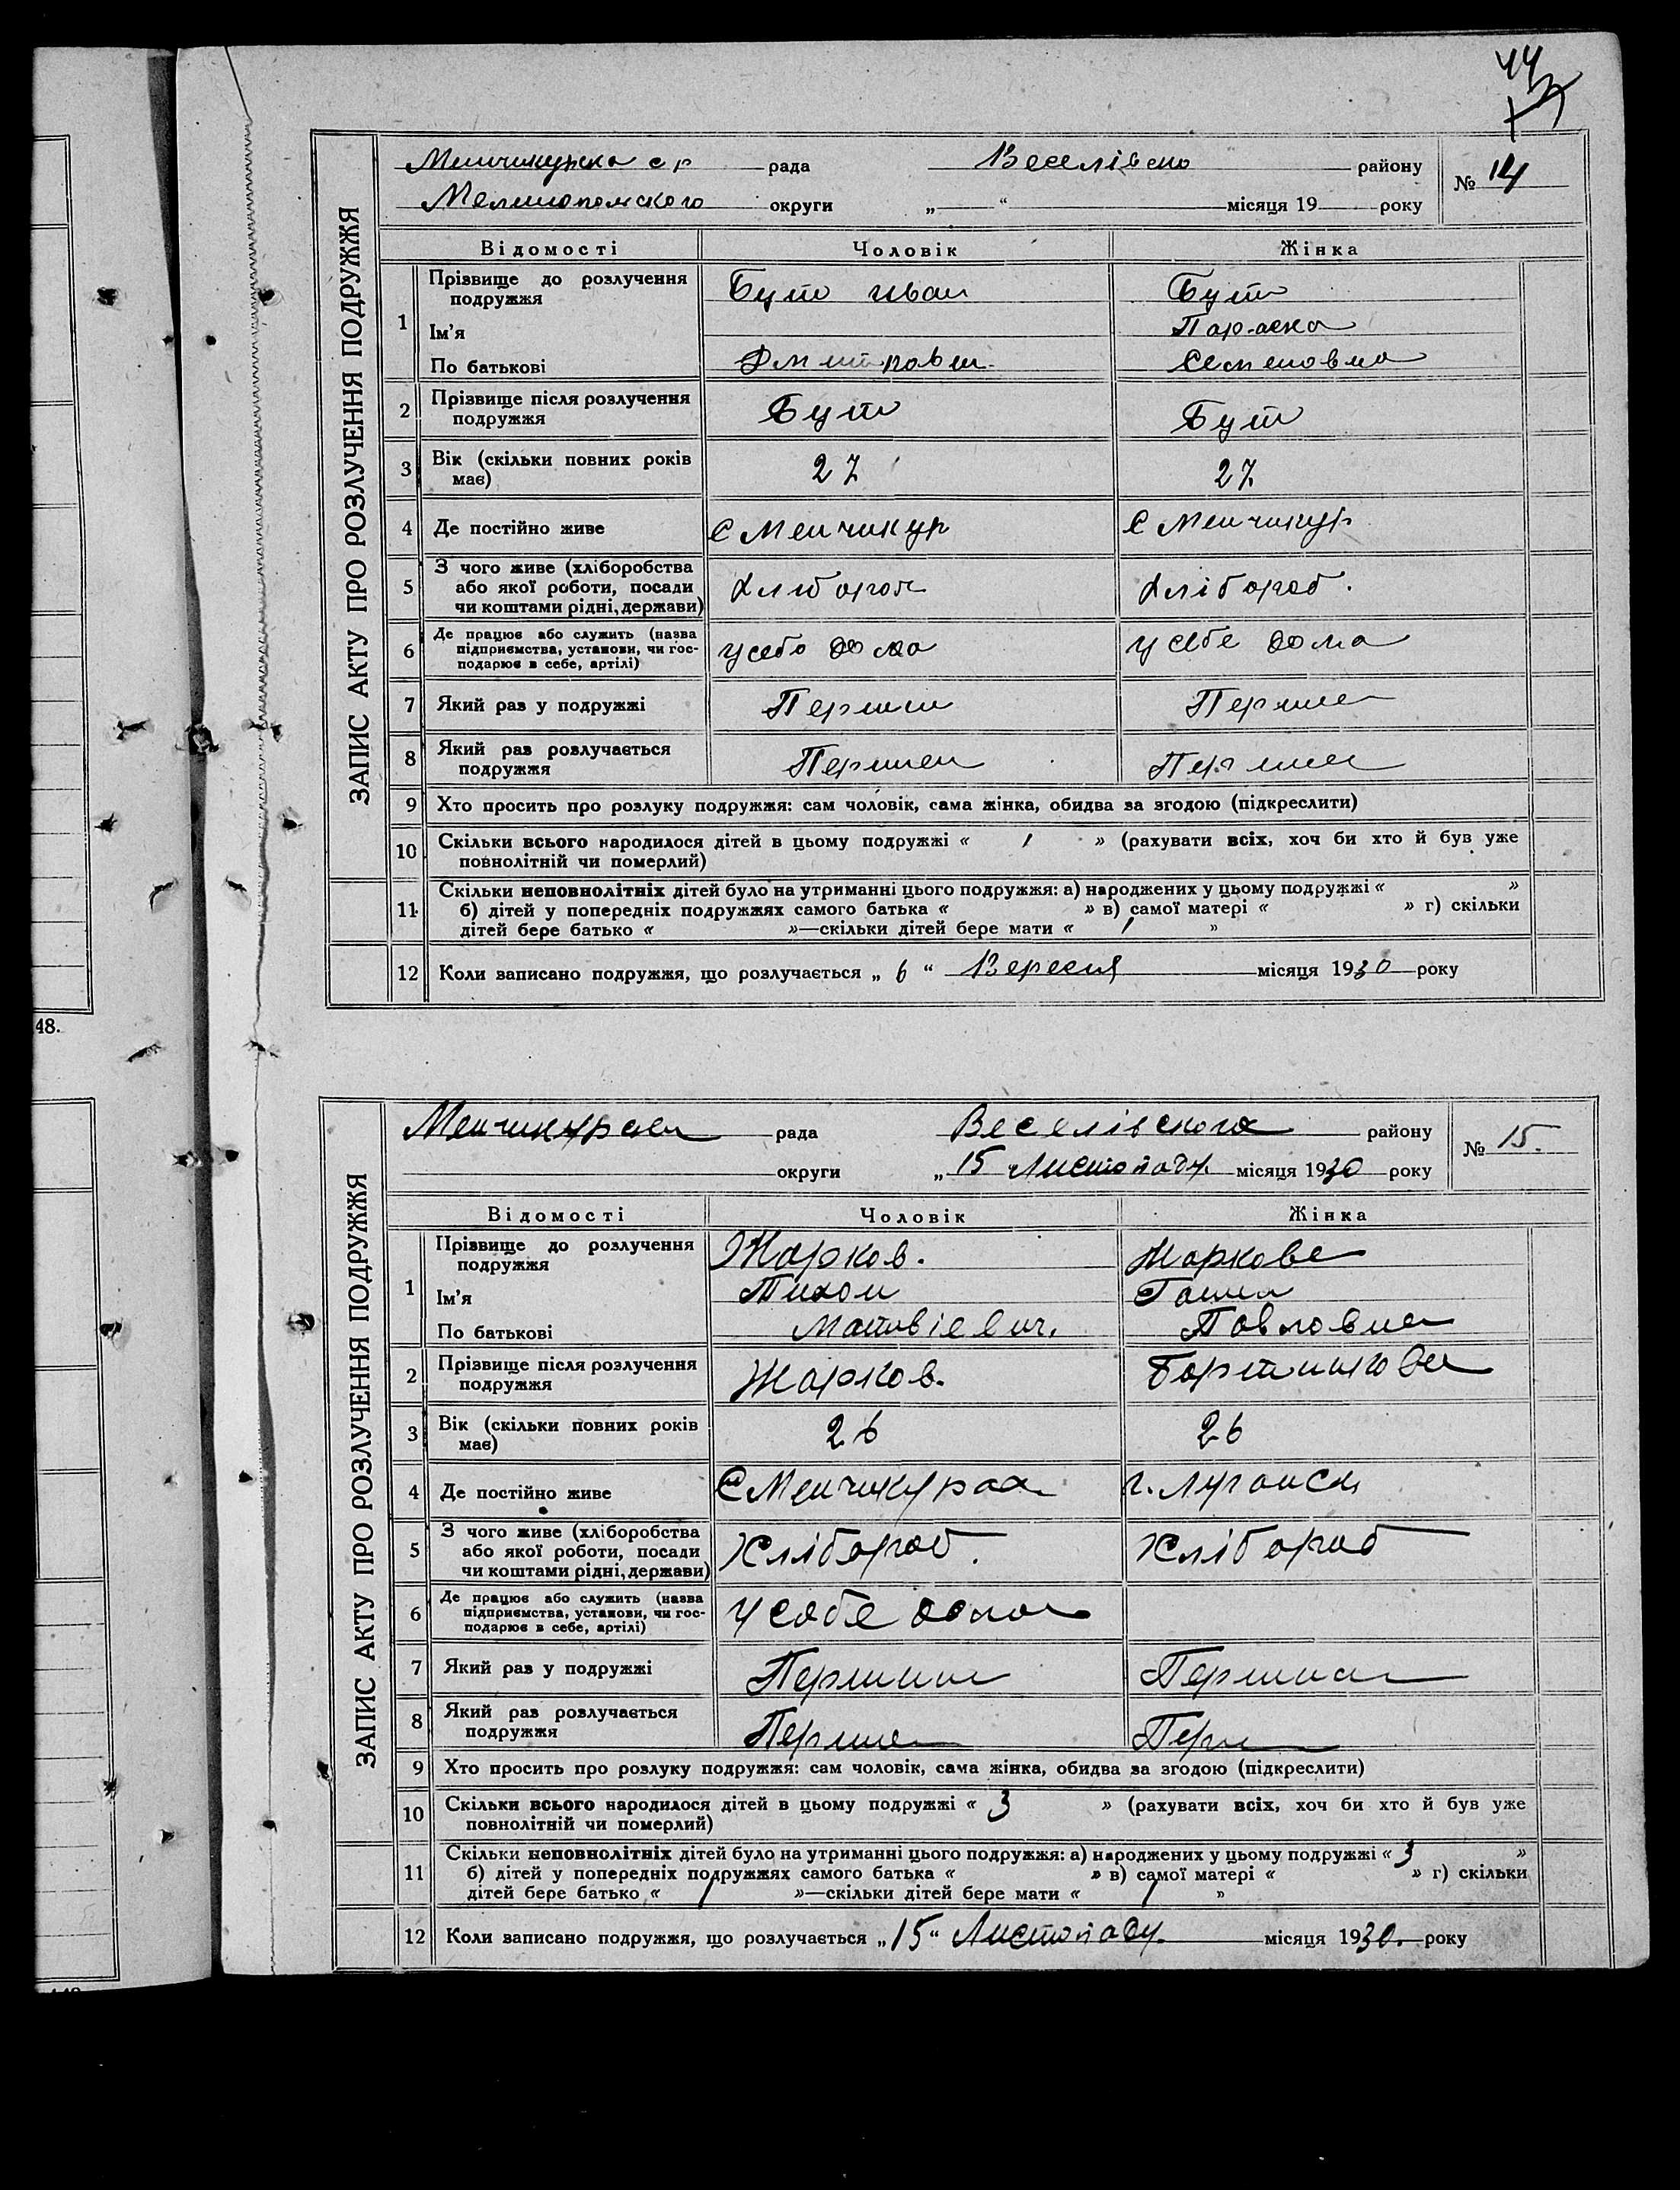 44
ЗАПИС АКТУ ПРО РОЗЛУЧЕННЯ ПОДРУЖЖЯ
Менчикурска с р рада Веселівско району № 14
Мелитопомского округи „ “ місяця 19 року
Відомості Чоловік Жінка
1 Прізвище до розлучення подружжя Бут Иван Бут
Ім’я Параска
По батькові Дмитрович Семеновна
2 Прізвище після розлучення подружжя Бут Бут
3 Вік (скільки повних років має) 27 27
4 Де постійно живе С Менчикур С Менчикур
5 З чого живе (хліборобства або якої роботи, посади чи коштами рідні, держави) Хлібороб Хлібороб.
6 Де працює або служить (назва підприємства, установи, чи господарює в себе, артілі) у себе дома у себе дома
7 Який раз у подружжі Перший Перше
8 Який раз розлучається подружжя Перше Перше
9 Хто просить про розлуку подружжя: сам чоловік, сама жінка, обидва за згодою (підкреслити)
10 Скільки всього народилося дітей в цьому подружжі « 1 » (рахувати всіх, хоч би хто й був уже
повнолітній чи померлий)
11 Скільки неповнолітніх дітей було на утриманні цього подружжя: а) народжених у цьому подружжі « »
б) дітей у попередніх подружжях самого батька « » в) самої матері « » г) скільки
дітей бере батько « »—скільки дітей бере мати « 1 »
12 Коли записано подружжя, що розлучається „ 6 “ Вересня місяця 1930 року
48.
ЗАПИС АКТУ ПРО РОЗЛУЧЕННЯ ПОДРУЖЖЯ
Менчикурска рада Веселівского району № 15.
округи „ 15 Листопаду. місяця 1930 року
Відомості Чоловік Жінка
1 Прізвище до розлучення подружжя Жарков. Жаркова
Ім’я Тихон Ганна
По батькові Матвієвич. Павловна
2 Прізвище після розлучення подружжя Жарков. Бортникова
3 Вік (скільки повних років має) 26 26
4 Де постійно живе С Менчикурах г. Луганськ
5 З чого живе (хліборобства або якої роботи, посади чи коштами рідні, держави) Хлібороб. Хлібороб
6 Де працює або служить (назва підприємства, установи, чи господарює в себе, артілі) у себе дома
7 Який раз у подружжі Перший Перша
8 Який раз розлучається подружжя Перше Перш
9 Хто просить про розлуку подружжя: сам чоловік, сама жінка, обидва за згодою (підкреслити)
10 Скільки всього народилося дітей в цьому подружжі « 3 » (рахувати всіх, хоч би хто й був уже
повнолітній чи померлий)
11 Скільки неповнолітніх дітей було на утриманні цього подружжя: а) народжених у цьому подружжі « 3 »
б) дітей у попередніх подружжях самого батька « » в) самої матері « » г) скільки
дітей бере батько « 1 »—скільки дітей бере мати « 1 »
12 Коли записано подружжя, що розлучається „ 15 “ Листопаду. місяця 1930. року